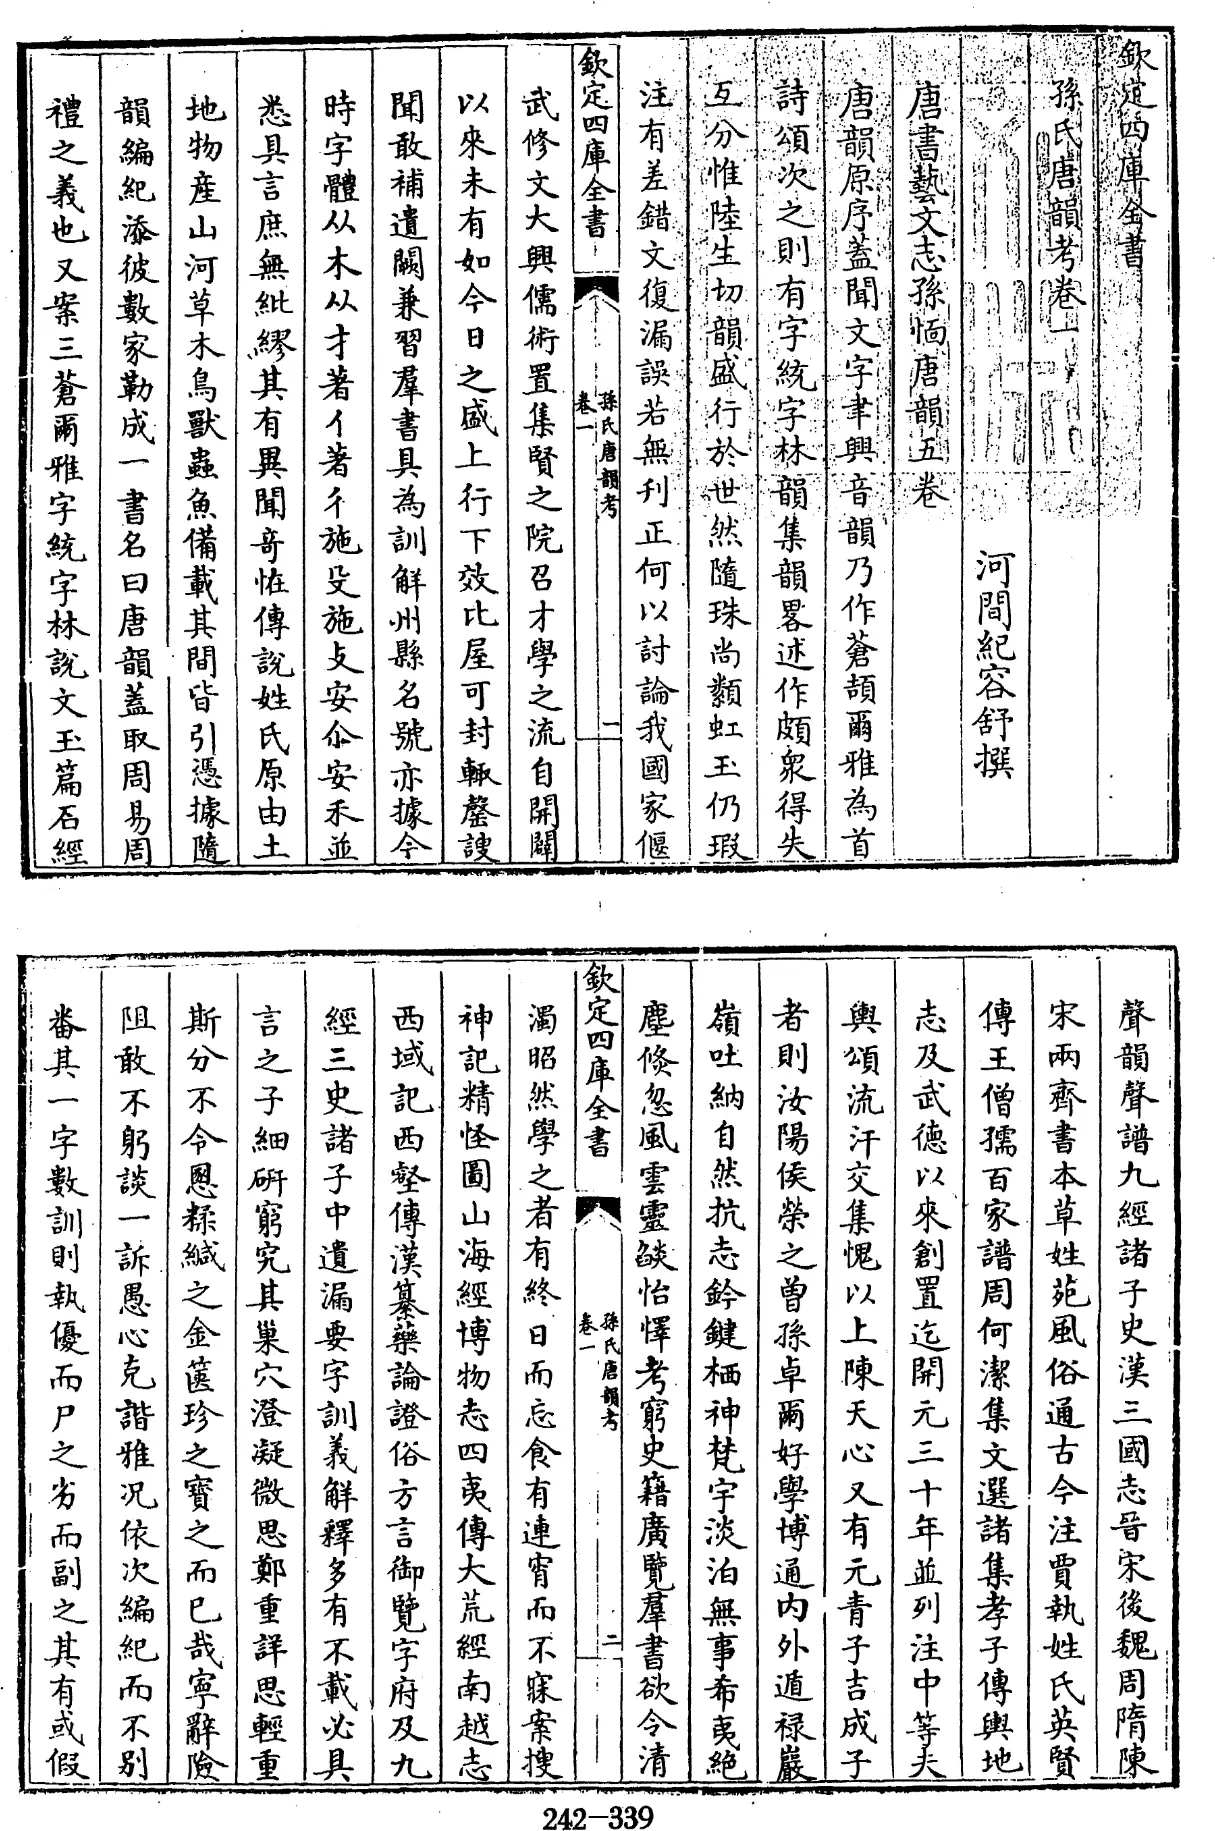 欽定四庫全書
孫氏唐韻考卷一
河間紀容舒撰
唐書藝文志孫愐唐韻五卷
唐韻原序蓋聞文字聿興音韻乃作蒼頡爾雅為首
詩頌次之則有字統字林韻集韻畧述作頗衆得失
互分惟陸生切韻盛行於世然隨珠尚纇虹玉仍瑕
注有差錯文復漏誤若無刋正何以討論我國家偃
欽定四庫全書
孫氏唐韻考
卷一
一
武修文大興儒術置集賢之院召才學之流自開闢
以來未有如今日之盛上行下效比屋可封輙罄謏
聞敢補遺闕兼習羣書具為訓解州縣名號亦據今
時字體从木从才著亻著彳施殳施攴安尒安禾並
悉具言庶無紕繆其有異聞奇恠傳說姓氏原由土
地物產山河草木鳥獸蟲魚備載其間皆引憑據隨
韻編紀添彼數家勒成一書名曰唐韻蓋取周易周
禮之義也又案三蒼爾雅字統字林說文玉篇石經
聲韻聲譜九經諸子史漢三國志晉宋後魏周隋陳
宋兩齊書本草姓苑風俗通古今注賈執姓氏英賢
傳王僧孺百家譜周何潔集文選諸集孝子傳輿地
志及武德以來創置迄開元三十年並列注中等夫
輿頌流汗交集愧以上陳天心又有元青子吉成子
者則汝陽侯榮之曾孫卓爾好學博通內外遁禄巖
嶺吐納自然抗志鈐鍵栖神梵宇淡泊無事希夷絶
塵倐忽風雲靈𦦨怡懌考窮史籍廣覽羣書欲令清
欽定四庫全書
孫氏唐韻考
卷一
二
濁昭然學之者有終日而忘食有連宵而不寐案搜
神記精怪圖山海經博物志四夷傳大荒經南越志
西域記西壑傳漢纂藥論證俗方言御覽字府及九
經三史諸子中遺漏要字訓義解釋多有不載必具
言之子細研窮究其巢穴澄凝微思鄭重詳思輕重
斯分不令慁糅緘之金篋珍之寶之而已哉寧辭險
阻敢不躬談一訴愚心克諧雅況依次編紀而不别
番其一字數訓則執優而尸之劣而副之其有或假
242-339